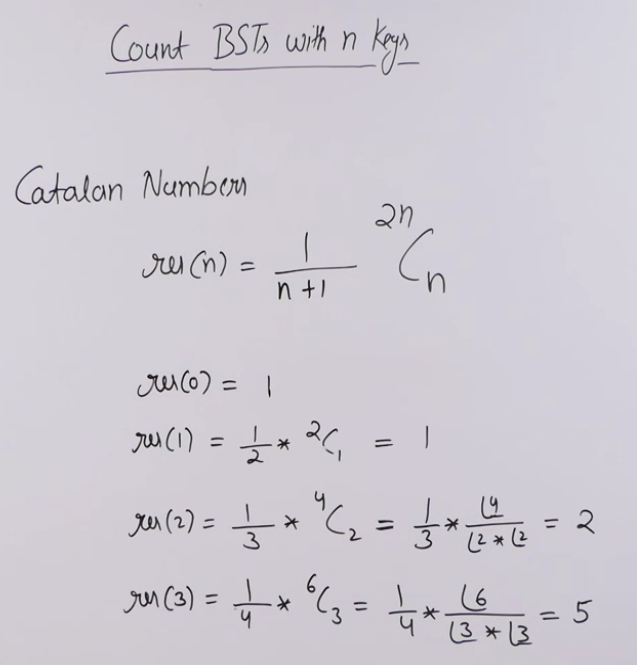 Count BSTs with n keys
Catalan Numbers
res(n) = 1/(n+1) ²ⁿCₙ
res(0) = 1
res(1) = 1/2 * ²C₁ = 1
res(2) = 1/3 * ⁴C₂ = 1/3 * ⌊4/(⌊2 * ⌊2) = 2
res(3) = 1/4 * ⁶C₃ = 1/4 * ⌊6/(⌊3 * ⌊3) = 5